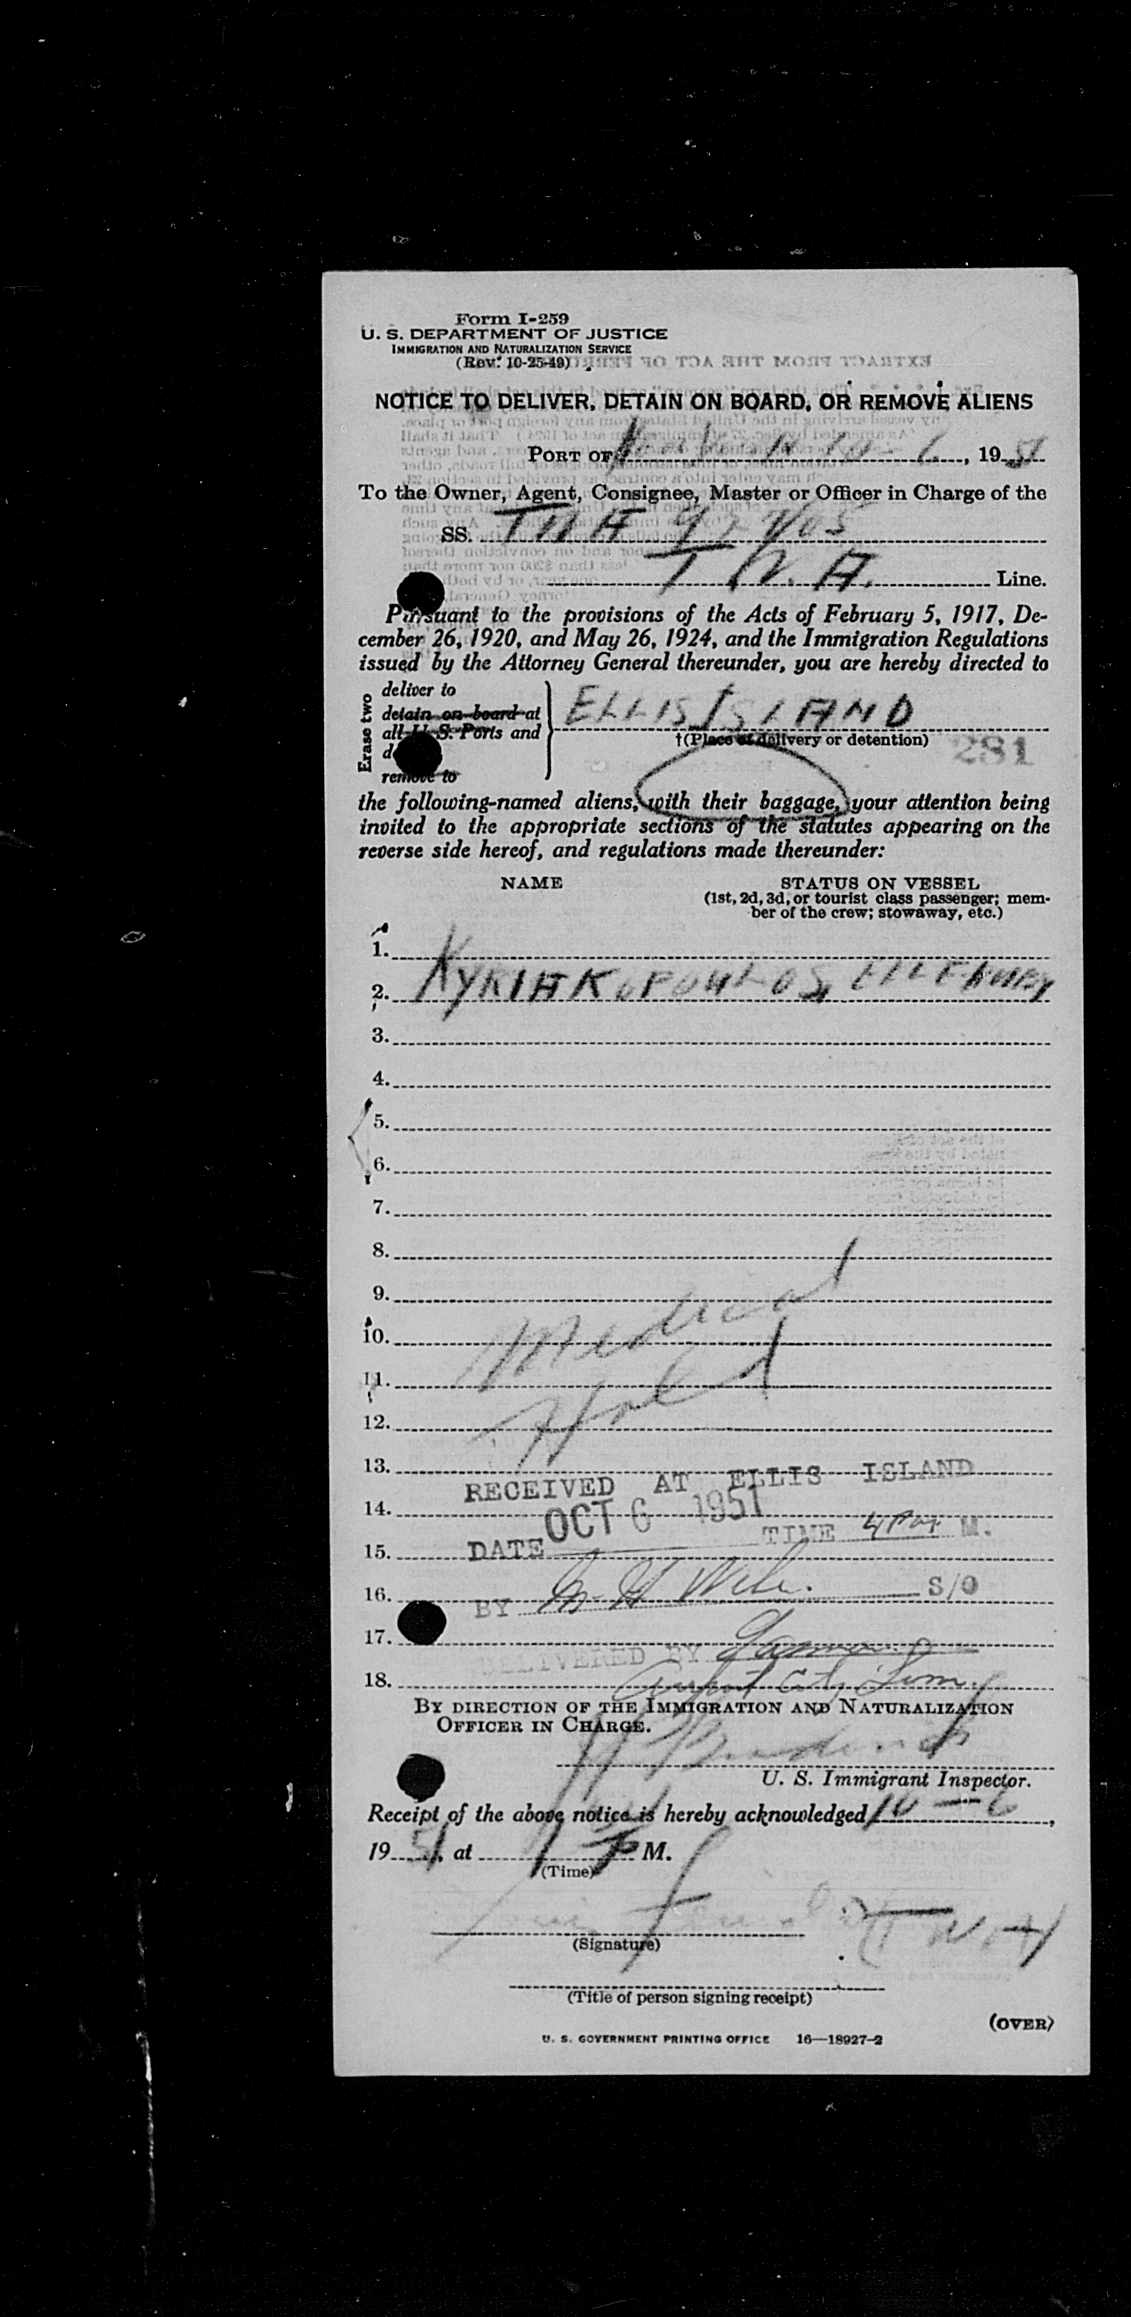 Form I-259
U. S. DEPARTMENT OF JUSTICE
IMMIGRATION AND NATURALIZATION SERVICE
(Rev. 10-25-49)
NOTICE TO DELIVER, DETAIN ON BOARD, OR REMOVE ALIENS
PORT OF 10-6, 1951
To the Owner, Agent, Consignee, Master or Officer in Charge of the
SS.
T.W.A. Line.
Pursuant to the provisions of the Acts of February 5, 1917, De-
cember 26, 1920, and May 26, 1924, and the Immigration Regulations
issued by the Attorney General thereunder, you are hereby directed to
Erase two
deliver to
detain on board at
all U. S. Ports and
remove to
ELLIS ISLAND
†(Place of delivery or detention)
281
the following-named aliens, with their baggage, your attention being
invited to the appropriate sections of the statutes appearing on the
reverse side hereof, and regulations made thereunder:
NAME STATUS ON VESSEL
(1st, 2d, 3d, or tourist class passenger; mem-
ber of the crew; stowaway, etc.)
1.
2. KYRIAKOPOULOS,
3.
4.
5.
6.
7.
8.
9.
10. Medical
11.
12. Hold
13.
RECEIVED AT ELLIS ISLAND
14.
DATE OCT 6 1951 TIME 4 PM M.
15.
16.
BY S/O
17.
DELIVERED BY
18.
Airport City
BY DIRECTION OF THE IMMIGRATION AND NATURALIZATION
OFFICER IN CHARGE.
U. S. Immigrant Inspector.
Receipt of the above notice is hereby acknowledged 10-6,
1951, at 1 P M.
(Time)
TWA
(Signature)
(Title of person signing receipt)
(OVER)
U. S. GOVERNMENT PRINTING OFFICE 16—18927-2